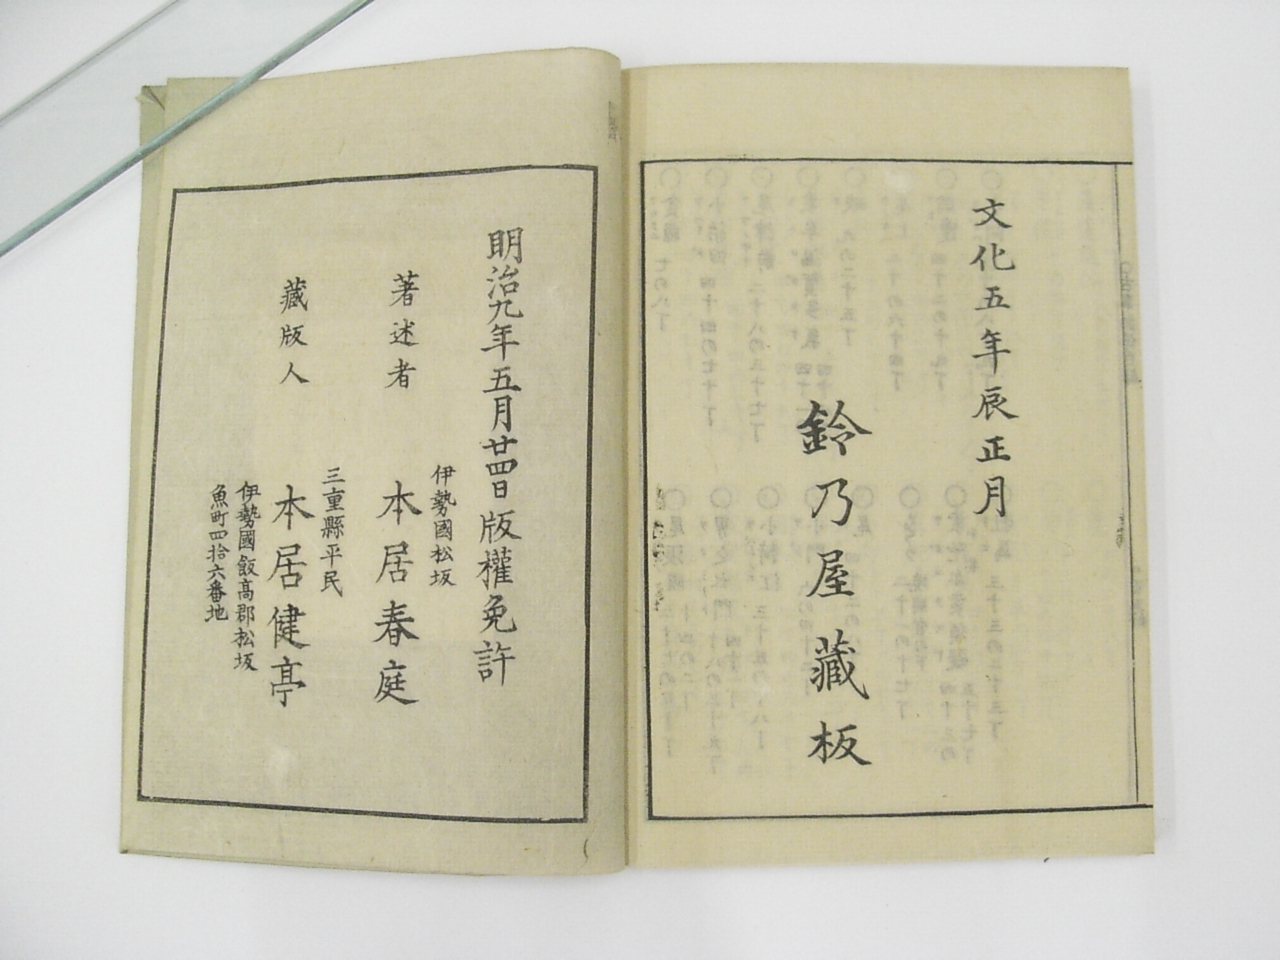 文化五年辰正月
鈴乃屋藏板
明治九年五月廿四日版權免許
著述者
伊勢國松坂
本居春庭
藏版人
三重縣平民
本居健亭
伊勢國飯高郡松坂
魚町四拾六番地